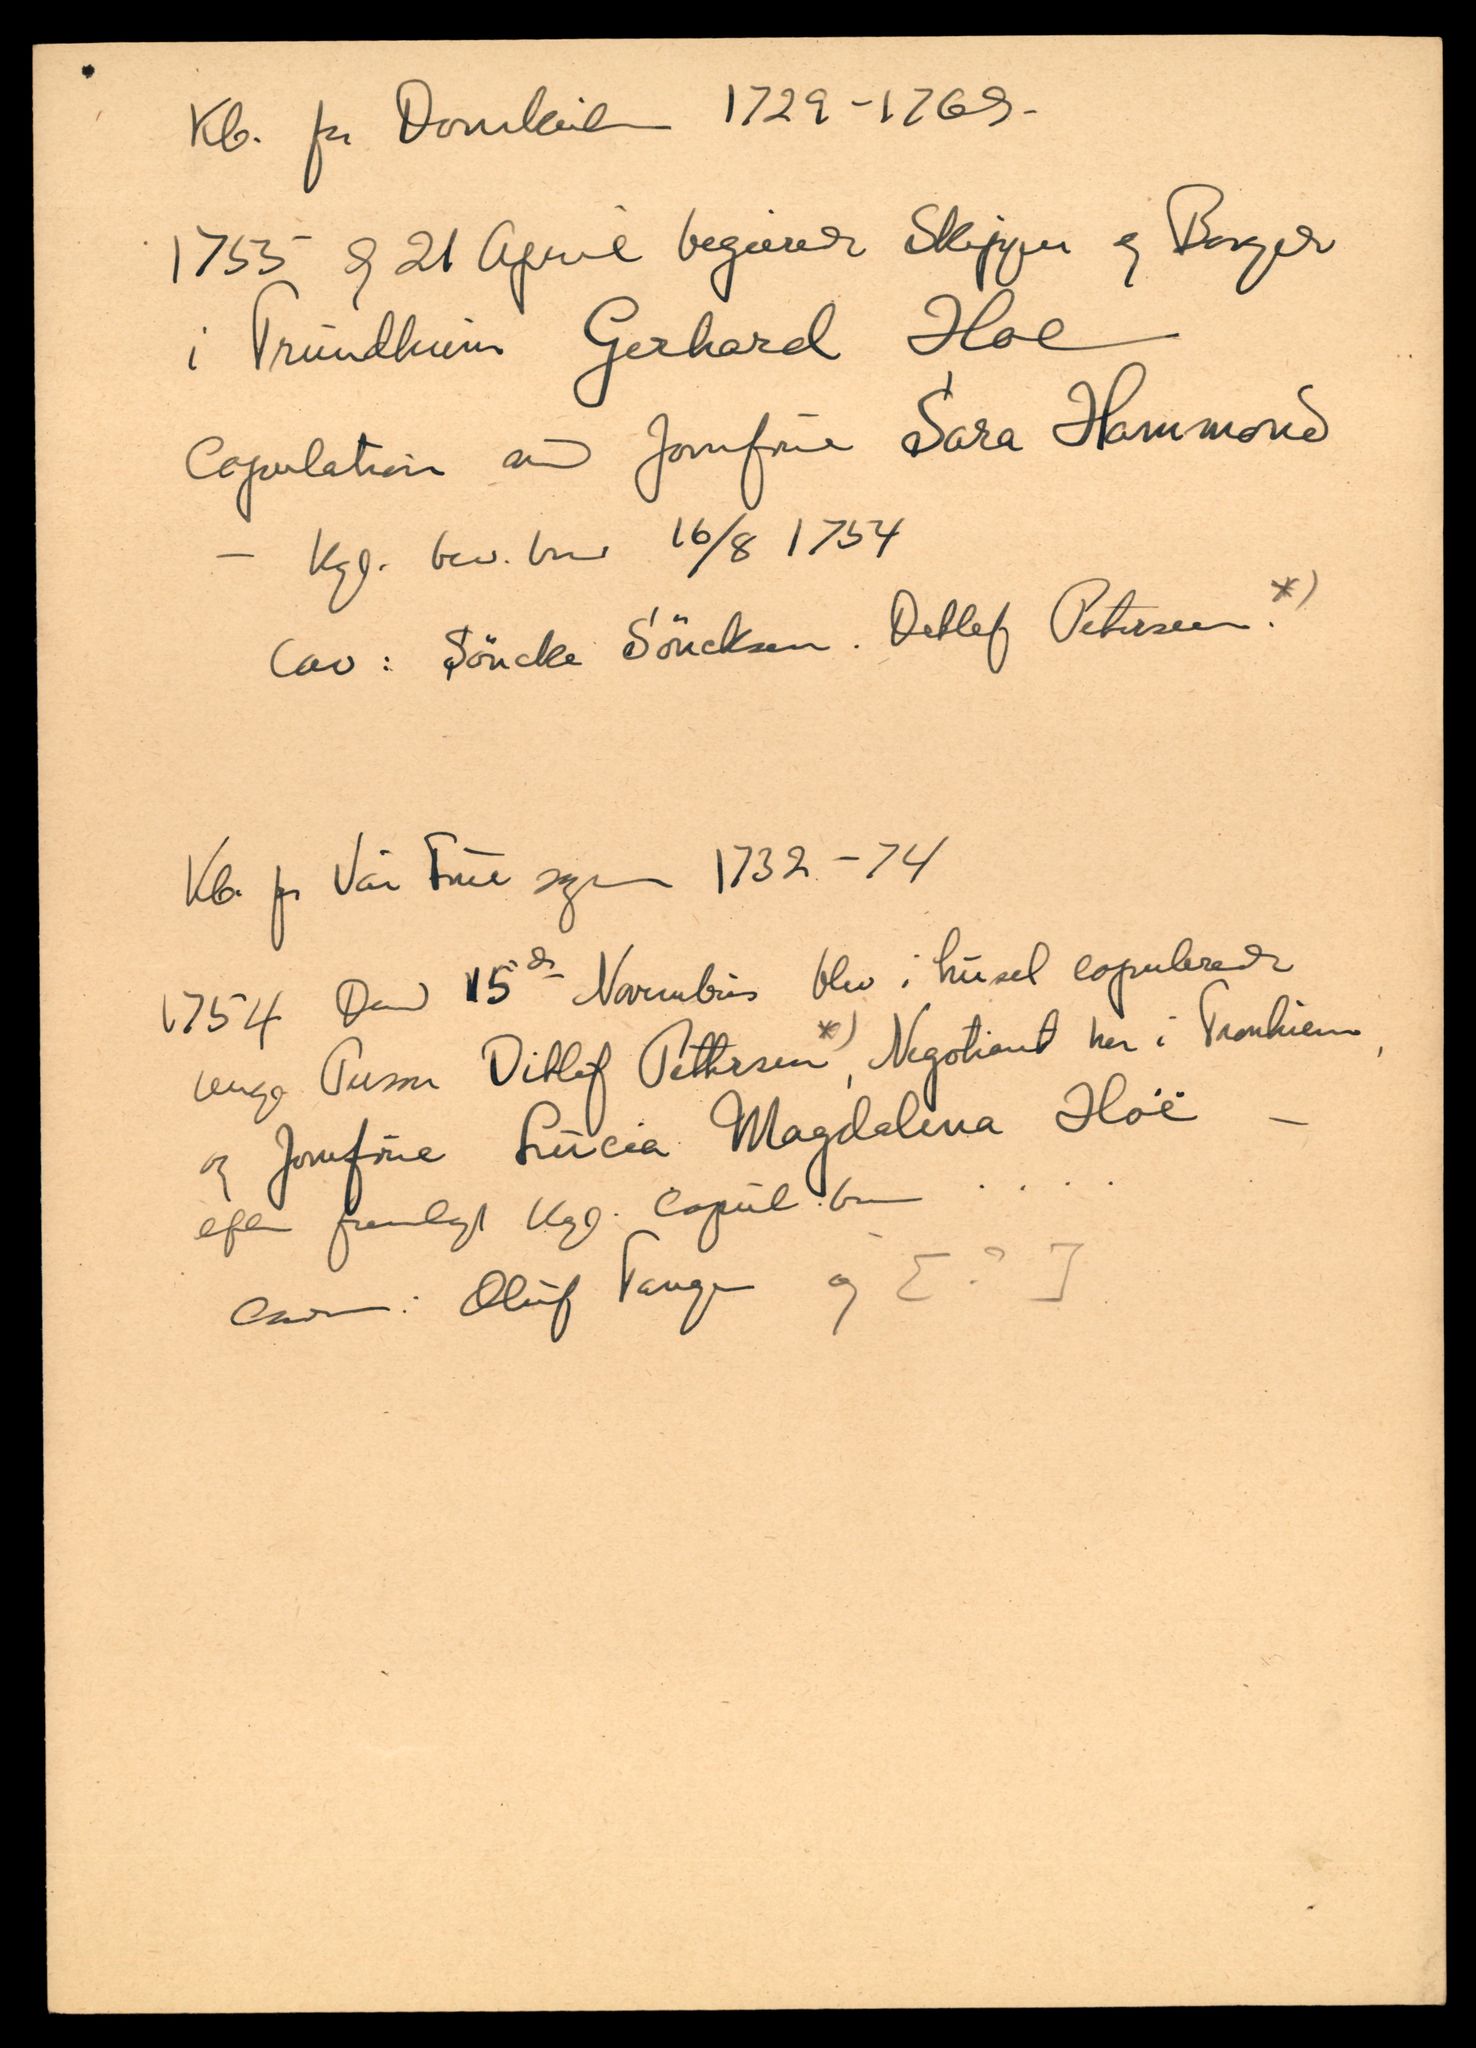 Kb. for Domkirken 1729-1769.
1755 d 21 April begierede Skipper og Borger
i Trundhiem Gerhard Hoe
Copulation med Jomfrue Sara Hammond
- Kgl. bev. brev 16/8 1754
Cav: Söncke Söncksen. Detlef Petersen. *)
Kb. for Vår Frue sogn 1732-74
1754 Den 15de Novembris blev i huset copulerede
unge Person Ditlef Pettersen *), Negotiant her i Tronhiem,
og Jomfrue Lucia Magdalena Hoë -
efter fremlagt Kgl. Copul. brev . . . . .
Caver: Oluf Tange og [ ? ]